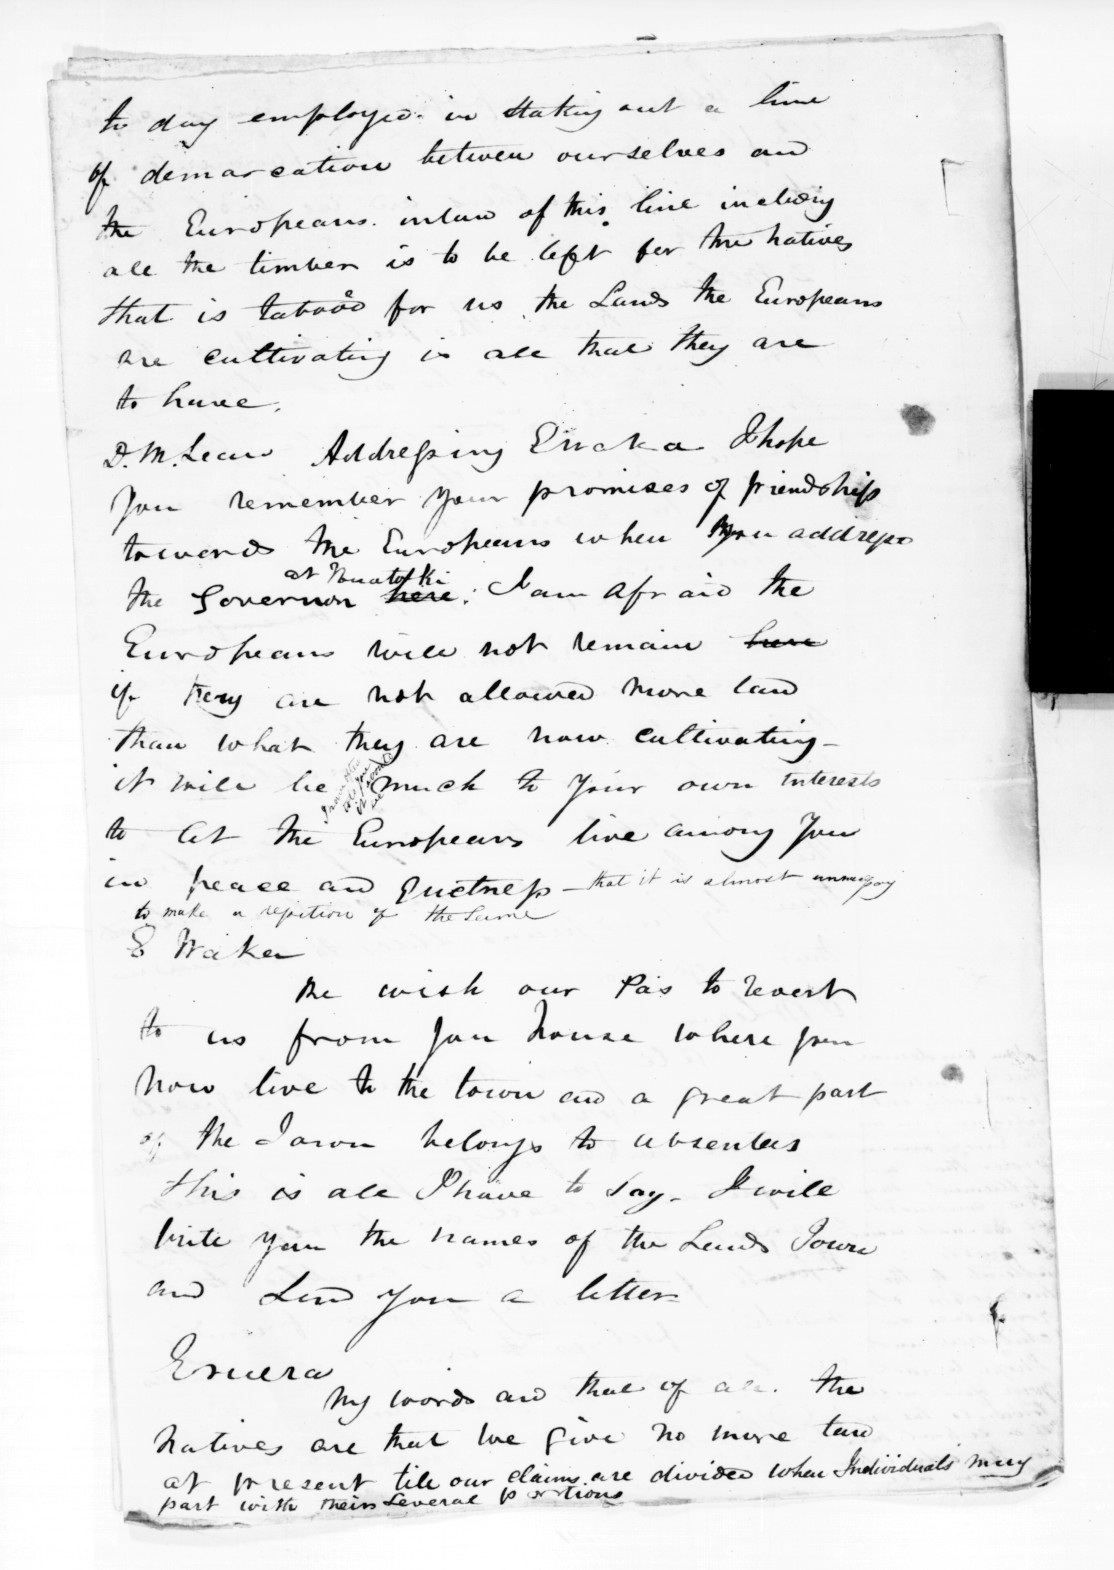 to day employed in staking out a line
of demarcation between ourselves and
the Europeans. inland of this line including
all the timber is to be left for the natives
that is tabooed for us the Lands the Europeans
are cultivating is all that they are
to have.
D. McLean Addressing Eruera I hope
You remember your promises of friendship
towards the Europeans when you address
at
the Governor here: I am afraid the
Europeans will not remain here
if they are not allowed more land
than what they are now cultivating -
it will be much to your own interests
to let the Europeans live among you
in peace and Quietness - that it is almost unnecessary
to make a repition of the same
E Waka
We wish our Pas to revert
to us from you house where you
now live to the town and a great part
of the Town belongs to absentees
this is all I have to say - I will
write you the names of the Lands Town
and send you a letter
Eruera
My words and that of all the
natives are that we give no more land
at present till our claims are divided when Individuals may
part with their several portions